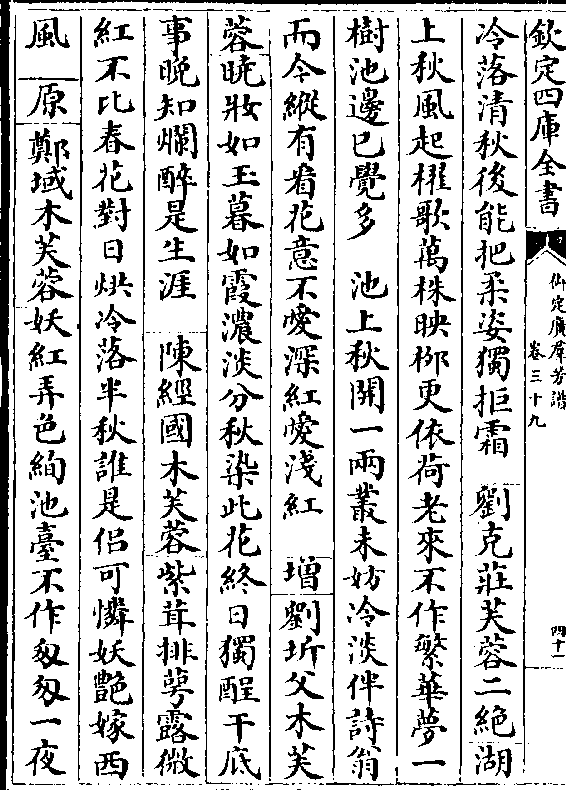 欽定四庫全書
御定廣羣芳譜
卷三十九
四十一
冷落清秋後能把柔姿獨拒霜　劉克莊芙蓉二絶湖
上秋風起櫂歌萬株映柳更依荷老來不作繁華夢一
樹池邊已覺多　池上秋開一兩叢未妨冷淡伴詩翁
而今縱有看花意不愛深紅愛淺紅　增劉圻父木芙
蓉曉妝如玉暮如霞濃淡分秋染此花終日獨醒干底
事晚知爛醉是生涯　陳經國木芙蓉紫茸排萼露微
紅不比春花對日烘冷落半秋誰是侣可憐妖艷嫁西
風　原鄭域木芙蓉妖紅弄色絢池臺不作匆匆一夜